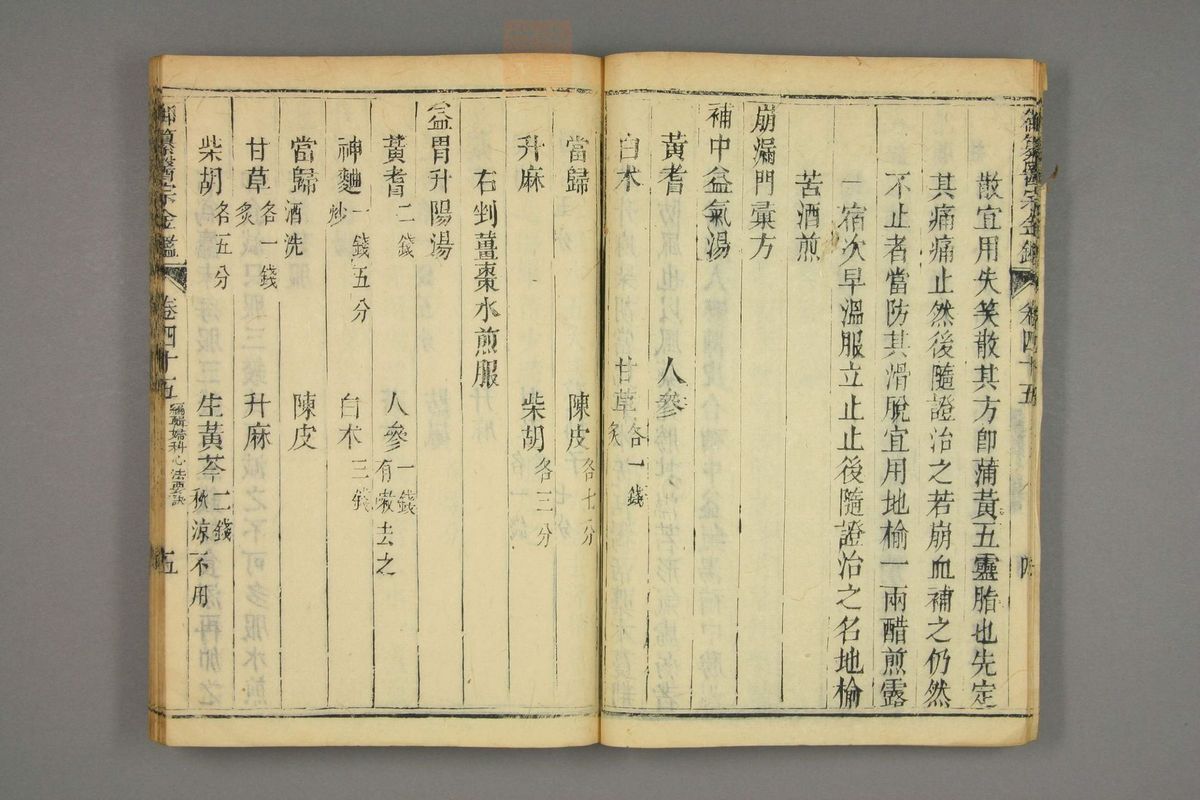 御纂醫宗金鑑 卷四十五
散宜用失笑散其方卽蒲黃五靈脂也先定
其痛痛止然後隨證治之若崩血補之仍然
不止者當防其滑脫宜用地榆一兩醋煎露
一宿次早溫服立止止後隨證治之名地榆
苦酒煎
崩漏門彙方
補中益氣湯
黃耆 人參
白朮 甘草炙各一錢
當歸 陳皮各七分
升麻 柴胡各三分
右剉薑棗水煎服
益胃升陽湯
黃耆二錢 人參一錢有嗽去之
神麯一錢五分炒 白朮三錢
當歸酒洗 陳皮
甘草炙各一錢 升麻
柴胡各五分 生黃芩二錢秋涼不用
御纂醫宗金鑑 卷四十五 編輯婦科心法要訣 五